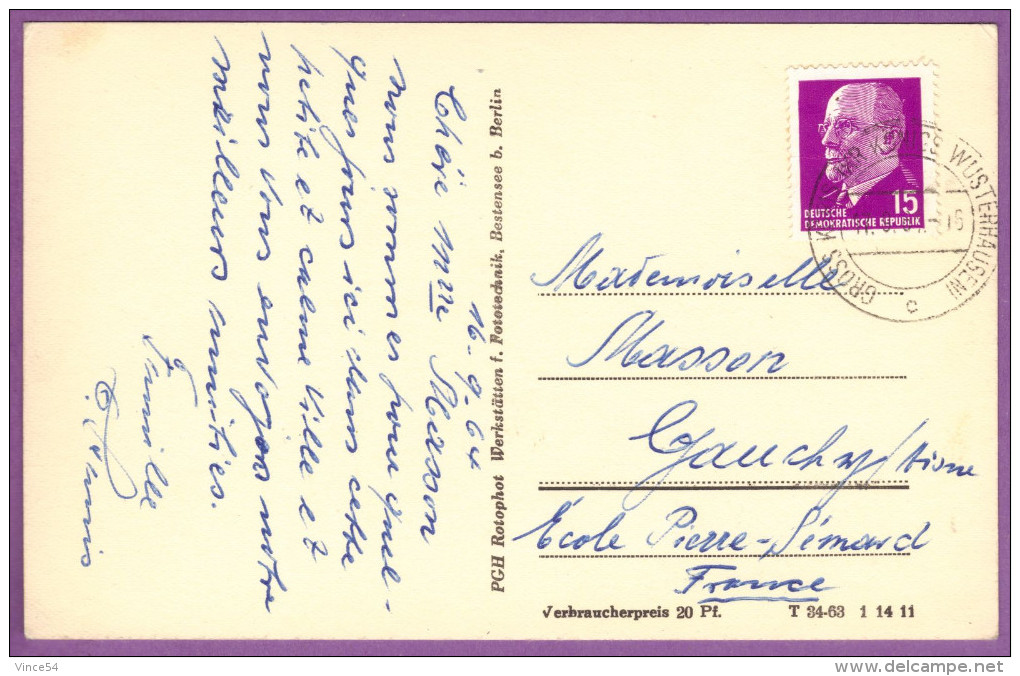 16-9.64
Chère Mlle Masson
nous sommes pour quel-
ques jours ici dans cette
petite et calme Ville et
nous vous envojons notre
meilleurs amitiés.
Famille
PGH Rotophot Werkstätten f. Fototechnik, Bestensee b. Berlin
15
DEUTSCHE
DEMOKRATISCHE REPUBLIK
WUSTERHAUSEN
Mademoiselle
Masson
Gauchy/Aisne
École Pierre-Sémard
France
Verbraucherpreis 20 Pf. T 34-63 1 14 11
Vince54
www.delcampe.net